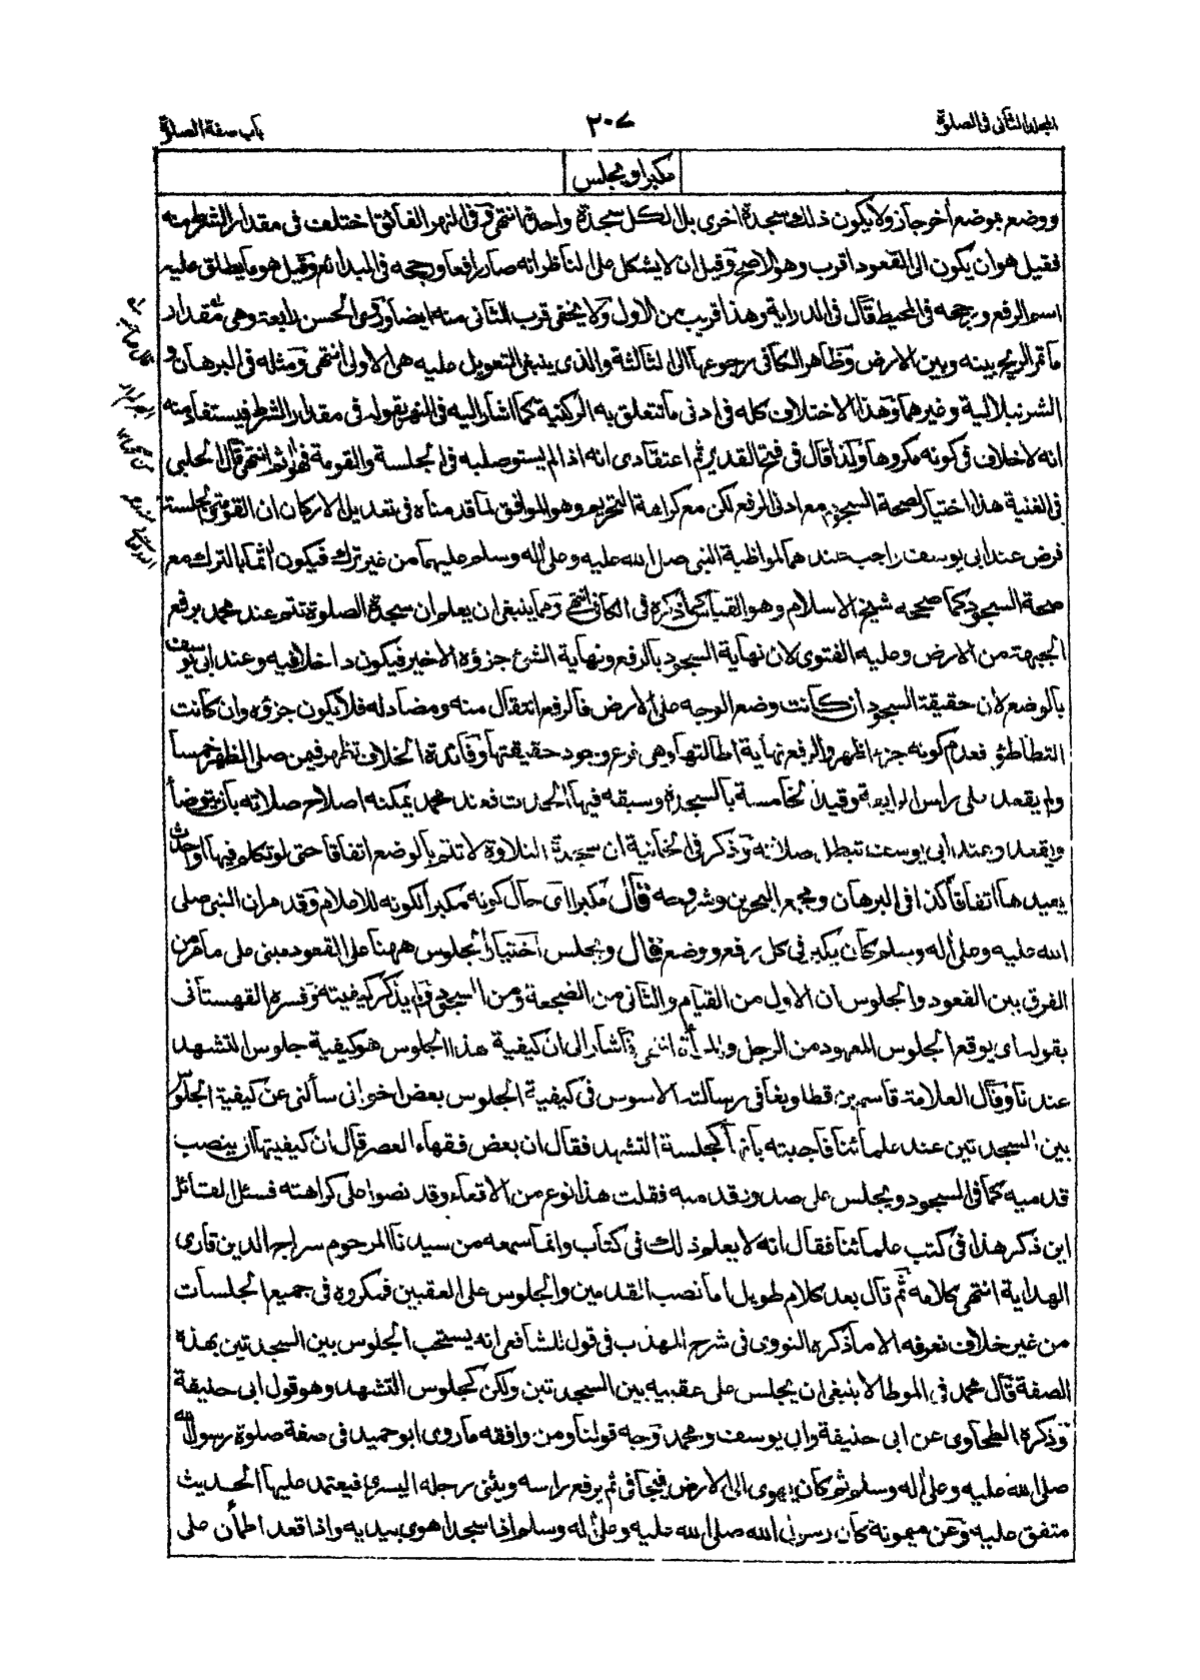 المجلد الثانى فى الصلوة
٣٠٧
باب صفة الصلوة
مكبرا ويجلس
ووضع بموضع أخر جاز ولا يكون ذلك سجدة اخرى بل الكل سجدة واحدة انتهى وفى النهر الفائق اختلف فى مقدار الشرط منه
فقيل هو ان يكون الى القعود اقرب وهو الاصح وقيل ان لا يشكل على الناظر انه صار رافعا ورجحه فى البدائع وقيل هو ما يطلق عليه
اسم الرفع ورجحه فى المحيط قال فى الدراية وهذا قريب من الاول ولا يخفى قرب الثانى منه ايضا وروى الحسن رابعة وهى مقدار
ما تمر الريح بينه وبين الارض وظاهر الكافى رجوعها الى الثالثة والذى ينبغى التعويل عليه هى الاولى انتهى ومثله فى البرهان و
الشرنبلالية وغيرهما وهذا الاختلاف كله فى ادنى ما تتعلق به الركنية كما اشار اليه فى النهر بقوله فى مقدار الشرط فيستفاد منه
انه لا خلاف فى كونه مكروها ولذا قال فى فتح القدير ثم اعتقادى انه اذا لم يستو صلبه فى الجلسة والقومة فهو اثم انتهى قال الحلبى
فى الغنية هذا اختيار لصحة السجود مع ادنى الرفع لكن مع كراهة التحريم وهو الموافق لما قدمناه فى تعديل الاركان ان القومة والجلسة
فرض عند ابى يوسف واجب عندهما لمواظبة النبى صلى الله عليه وعلى اله وسلم عليهما من غير ترك فيكون اثما بالترك مع
صحة السجود كما صححه شيخ الاسلام وهو القياس كما ذكره فى الكافى انتهى ومما ينبغى ان يعلم ان سجدة الصلوة تتم عند محمد برفع
الجبهة من الارض وعليه الفتوى لان نهاية السجود بالرفع ونهاية الشئ جزؤه الاخير فيكون داخلا فيه وعند ابى يوسف
بالوضع لان حقيقة السجود ان كانت وضع الوجه على الارض فالرفع انتقال منه ومضاد له فلا يكون جزؤه وان كانت
التطاطؤ فعدم كونه جزء اظهر والرفع نهاية اطالتها وهى نوع وجود حقيقتها وفائدة الخلاف تظهر فيمن صلى الظهر خمسا
ولم يقعد على راس الرابعة وقيد الخامسة بالسجدة وسبقه فيها الحدث فعند محمد يمكنه اصلاح صلاته بان يتوضأ
ويقعد وعند ابى يوسف تبطل صلاته وذكر فى الخانية ان سجدة التلاوة لا تتم بالوضع اتفاقا حتى لو تكلم فيها او احدث
يعيدها اتفاقا كذا فى البرهان ومجمع البحرين وشروحه قال مكبرا اى حال كونه مكبرا لكونه للاعلام وقد مر ان النبى صلى
الله عليه وعلى اله وسلم كان يكبر فى كل رفع ووضع قال ويجلس اختيار الجلوس ههنا على القعود مبنى على ما مر من
الفرق بين القعود والجلوس ان الاول من القيام والثانى من الضجعة ومن السجود ولم يذكر كيفيته وفسره القهستانى
بقوله اى يوقع الجلوس المعهود من الرجل والمرأة انتهى فاشار الى ان كيفية هذا الجلوس هو كيفية جلوس التشهد
عندنا وقال العلامة قاسم بن قطلوبغا فى رسالته الاسوس فى كيفية الجلوس بعض اخوانى سألنى عن كيفية الجلوس
بين السجدتين عند علمائنا فاجبته بانها كجلسة التشهد فقال ان بعض فقهاء العصر قال ان كيفيتها ان ينصب
قدميه كما فى السجود ويجلس على صدور قدميه فقلت هذا نوع من الاقعاء وقد نصوا على كراهته فسئل القائل
اين ذكر هذا فى كتب علمائنا فقال انه لا يعلم ذلك فى كتاب وانما سمعه من سيدنا المرحوم سراج الدين قارى
الهداية انتهى كلامه ثم قال بعد كلام طويل اما نصب القدمين والجلوس على العقبين فمكروه فى جميع الجلسات
من غير خلاف نعرفه الا ما ذكره النووى فى شرح المهذب فى قول للشافعى انه يستحب الجلوس بين السجدتين بهذه
الصفة قال محمد فى الموطا لا ينبغى ان يجلس على عقبيه بين السجدتين ولكن كجلوس التشهد وهو قول ابى حنيفة
وذكره الطحاوى عن ابى حنيفة وابى يوسف ومحمد وجه قولنا ومن وافقه ما روى ابو حميد فى صفة صلوة رسول الله
صلى الله عليه وعلى اله وسلم ثم كان يهوى الى الارض فيجافى ثم يرفع راسه ويثنى رجله اليسرى فيعتمد عليها الحديث
متفق عليه وعن ميمونة كان رسول الله صلى الله عليه وعلى اله وسلم اذا سجد اهوى بيديه واذا قعد اطمأن على